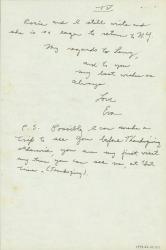 Rosie and I still write and
she is so eager to return to N.Y.
My regards to
and to you
my best wishes as
always
Love
Eva
P.S. Possibly I can make a
trip to see you before Thanksgiving
otherwise you are my first visit
any time you can see me at that
time. (Thanksgiving).